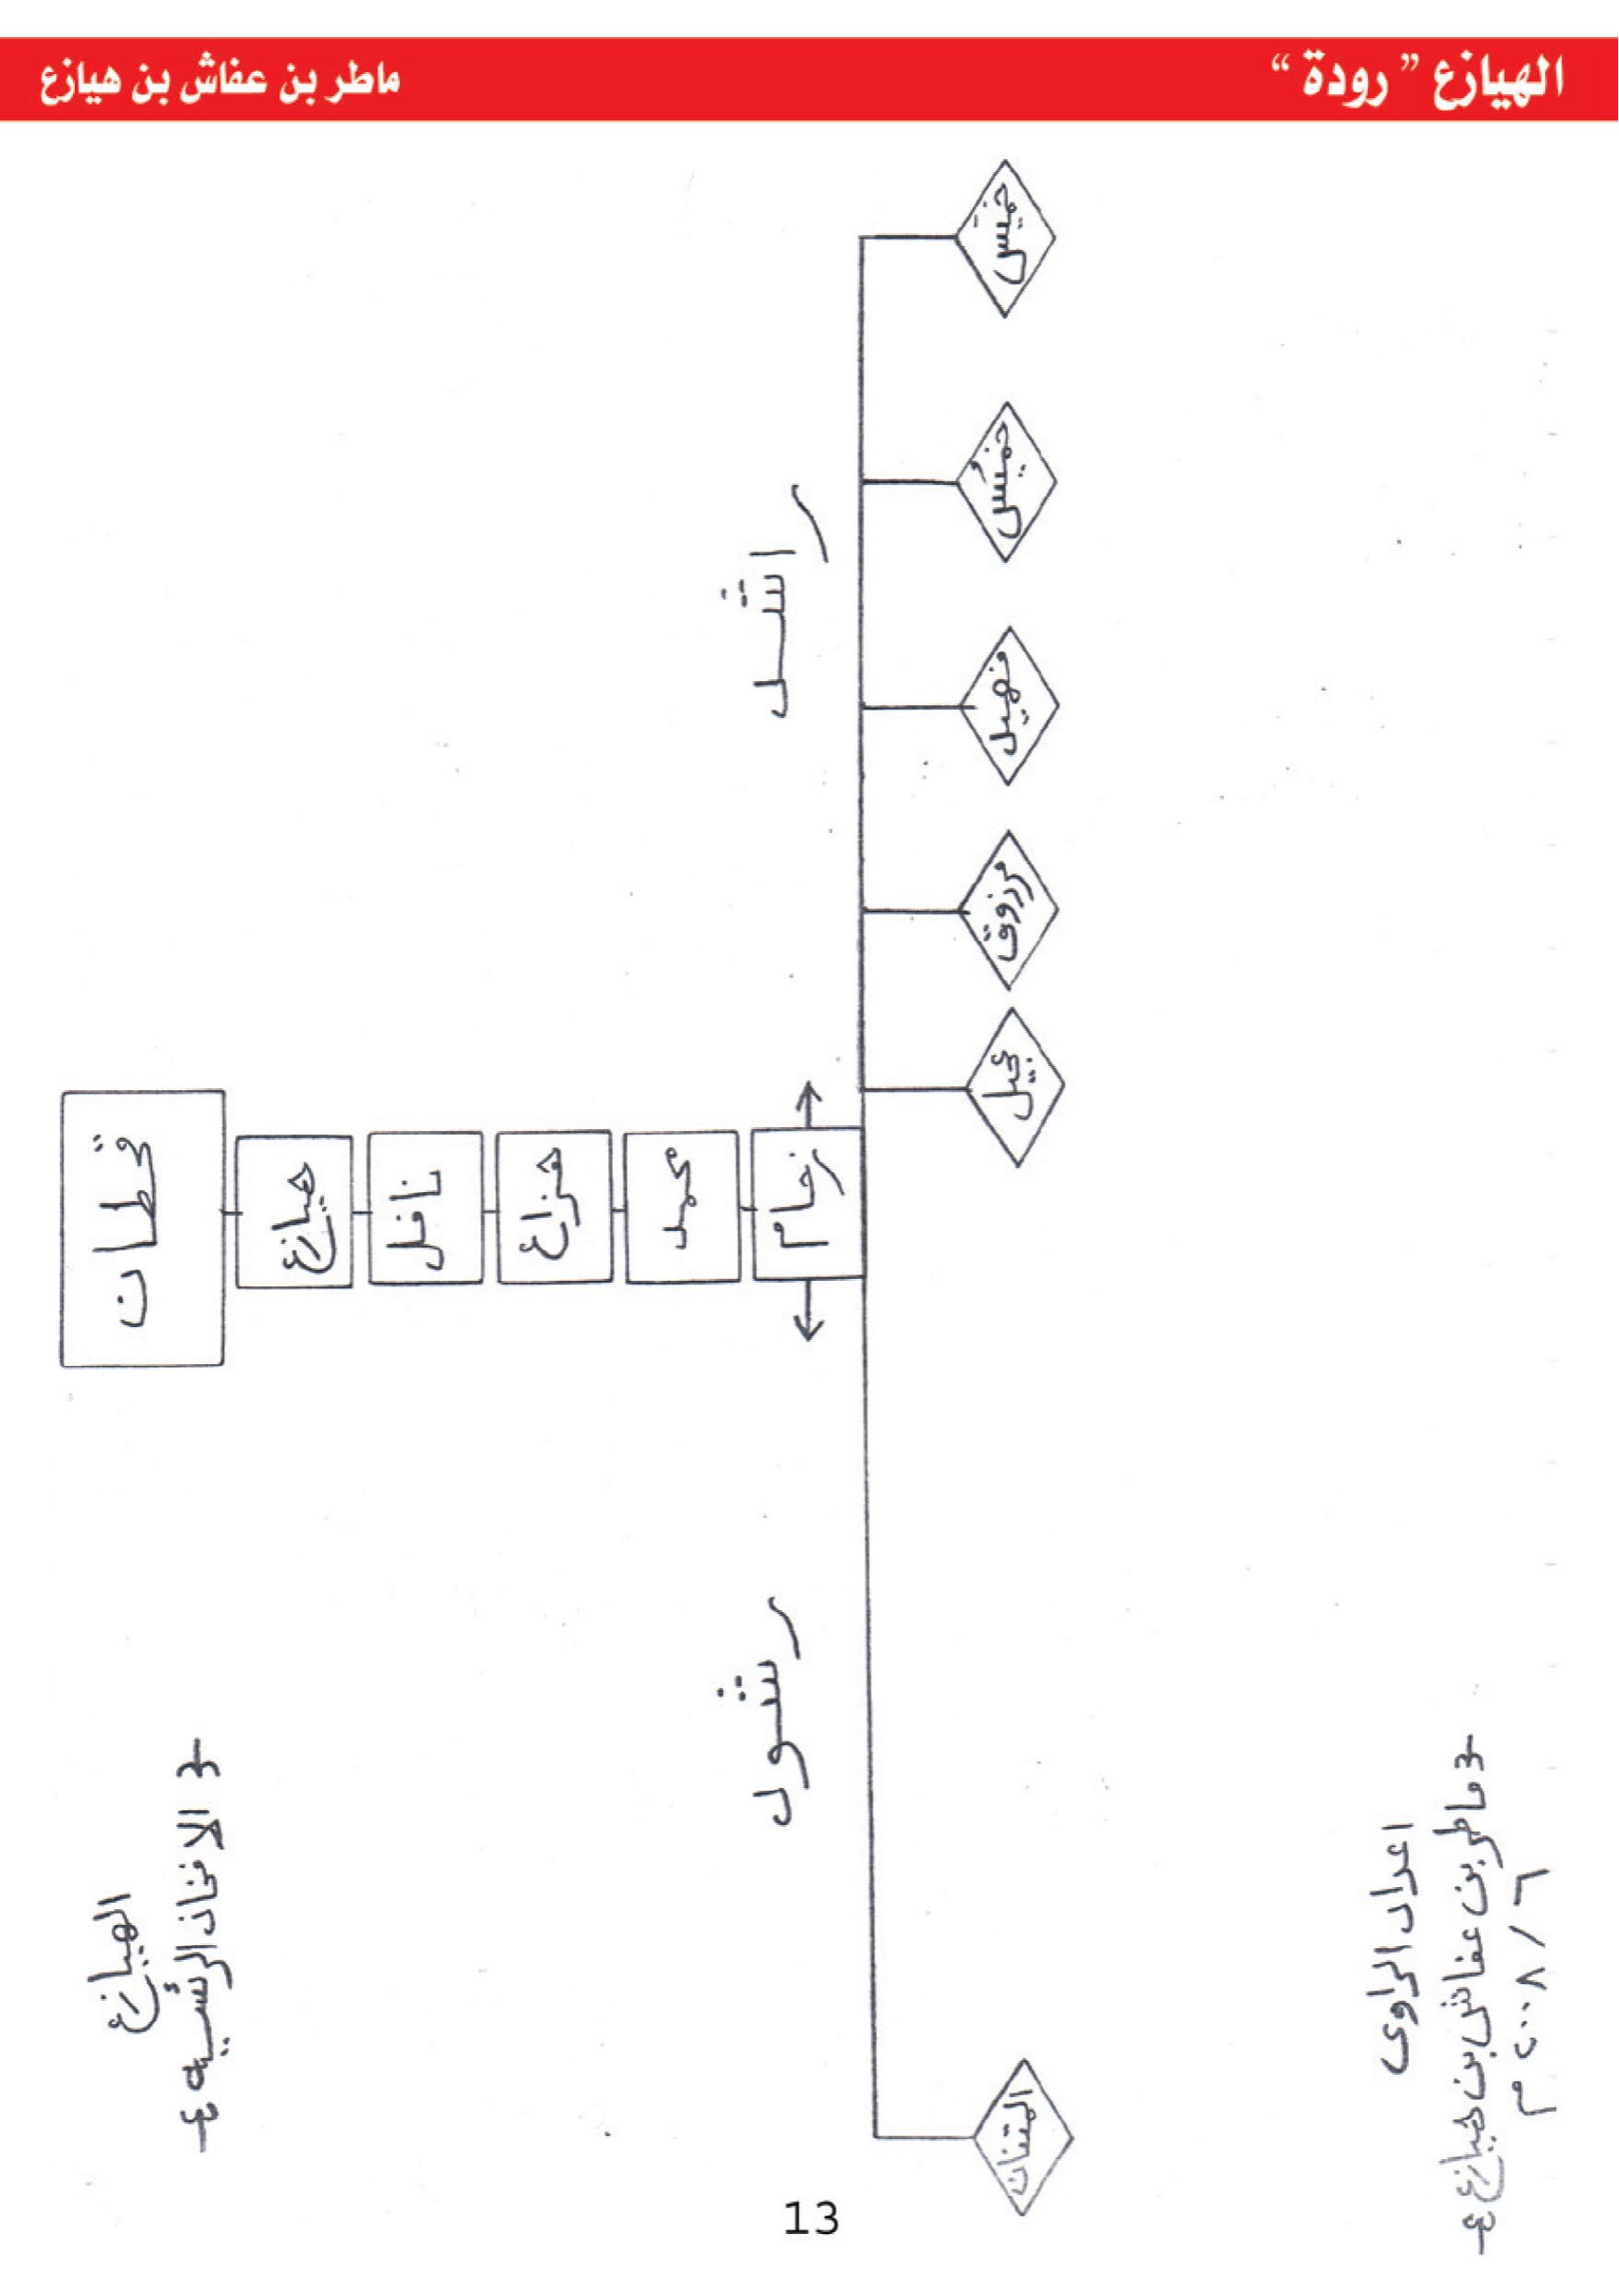 الهيازع " رودة "
ماطر بن عفاش بن هيازع
الهيازع
الافخاذ الرئسيه
قحطان
هيازع
نافل
هزاع
محمد
زحام
راشل
رشول
خميس
خميس
فهيل
مرزوق
جميل
المتنان
اعداد الراوى
ماطر بن عفاش بن هيازع
٦ / ٢٠٠٨ م
13